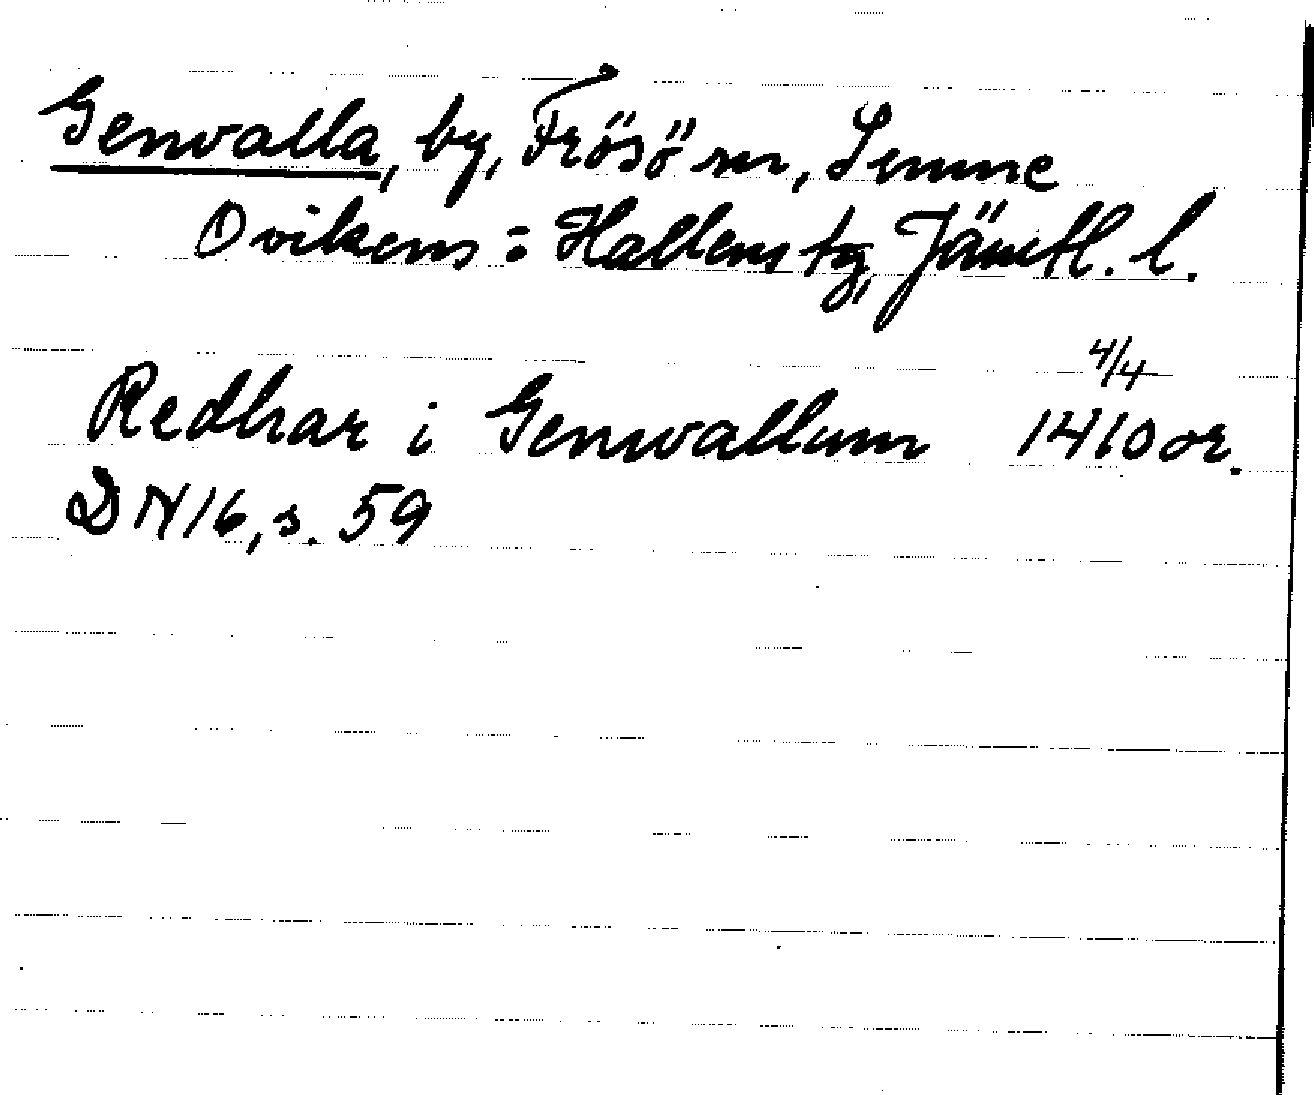 Genvalla, by, Frösö sn, Sunne
Ovikens o Hallens tg, Jämtl. l.
4/4
Redhar i Genwallum 1410 or.
DN 16, s. 59